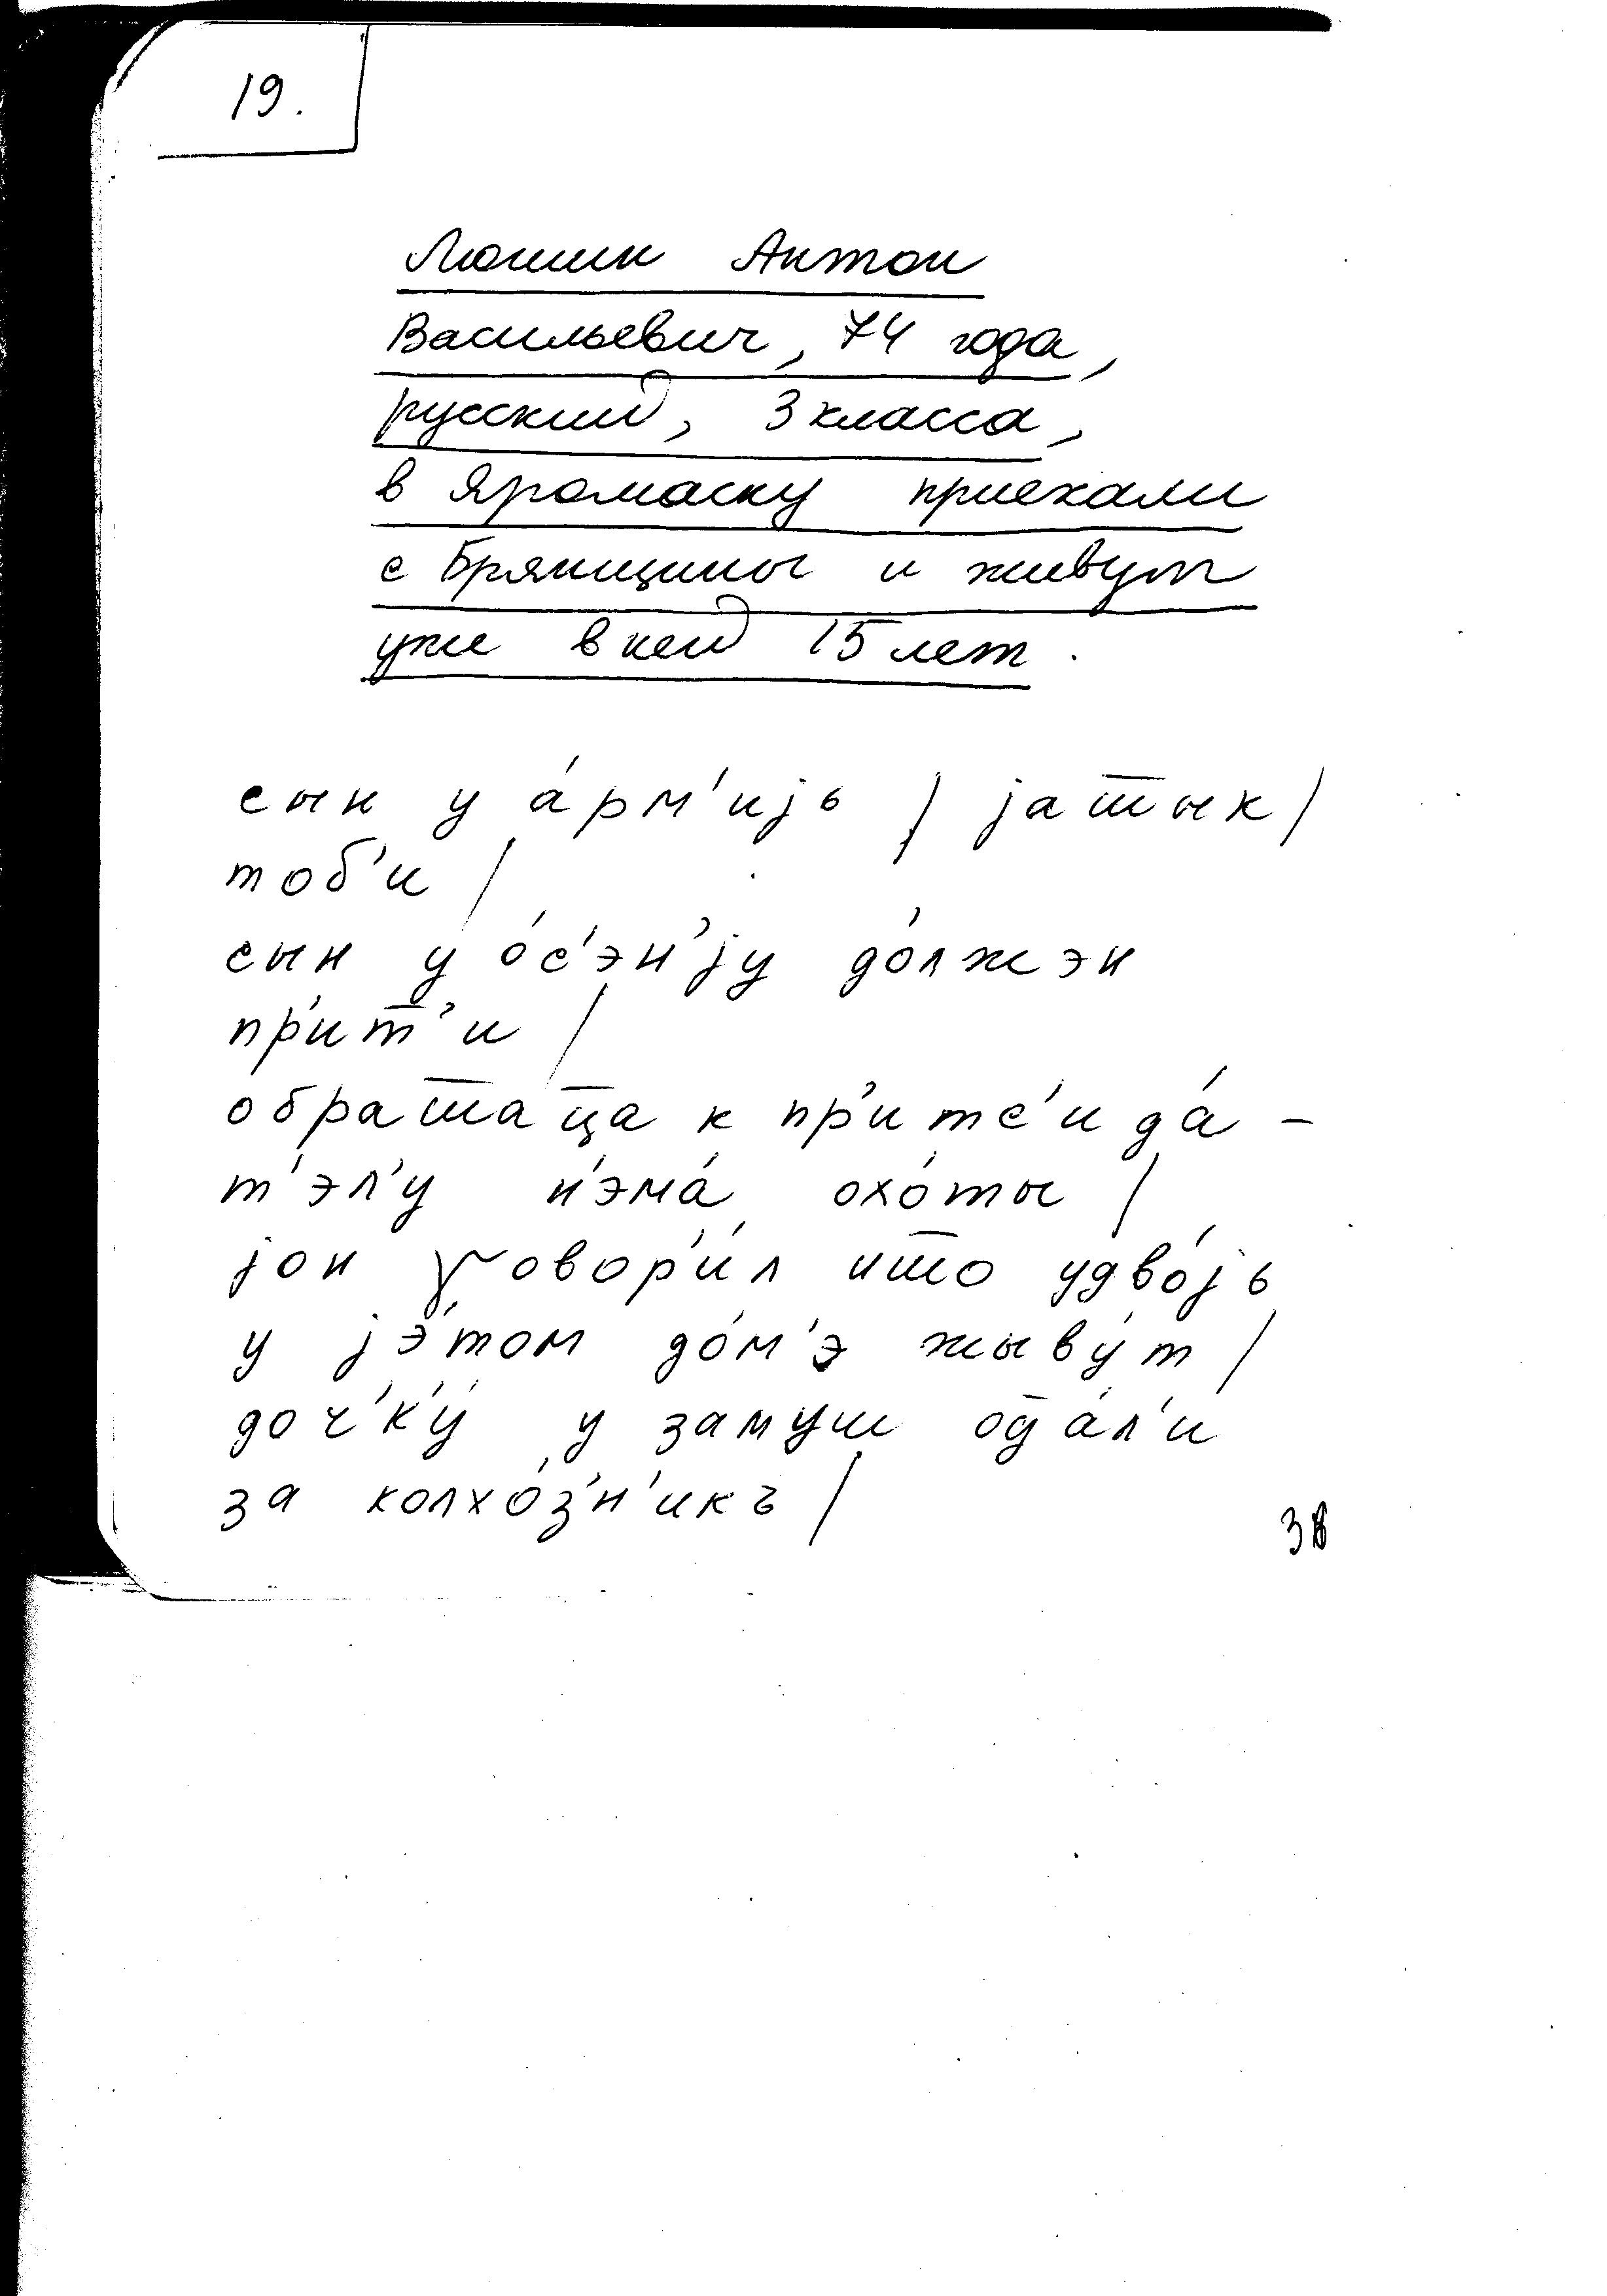 19.
Люшин Антон
Васильевич, 74 года,
русский, 3 класса,
в Яромаску приехали
с Брянщины и живут
уже в ней 15 лет.
сын у а́рм'иjь / jаш̅ык /
тоб'и /
сын у о́с'эн'jу до́лжэн
пр'ит̅'и /
обраш̅ац̅а к пр'итс'ида́-
т'эл'у н'эма́ охо́ты /
jон γовор'и́л ишт̅о удво́jь
у jэ́том до́м'э жыву́т /
доч'к'у́ у замуш од̅а́л'и
за колхо́з'н'икъ /
38